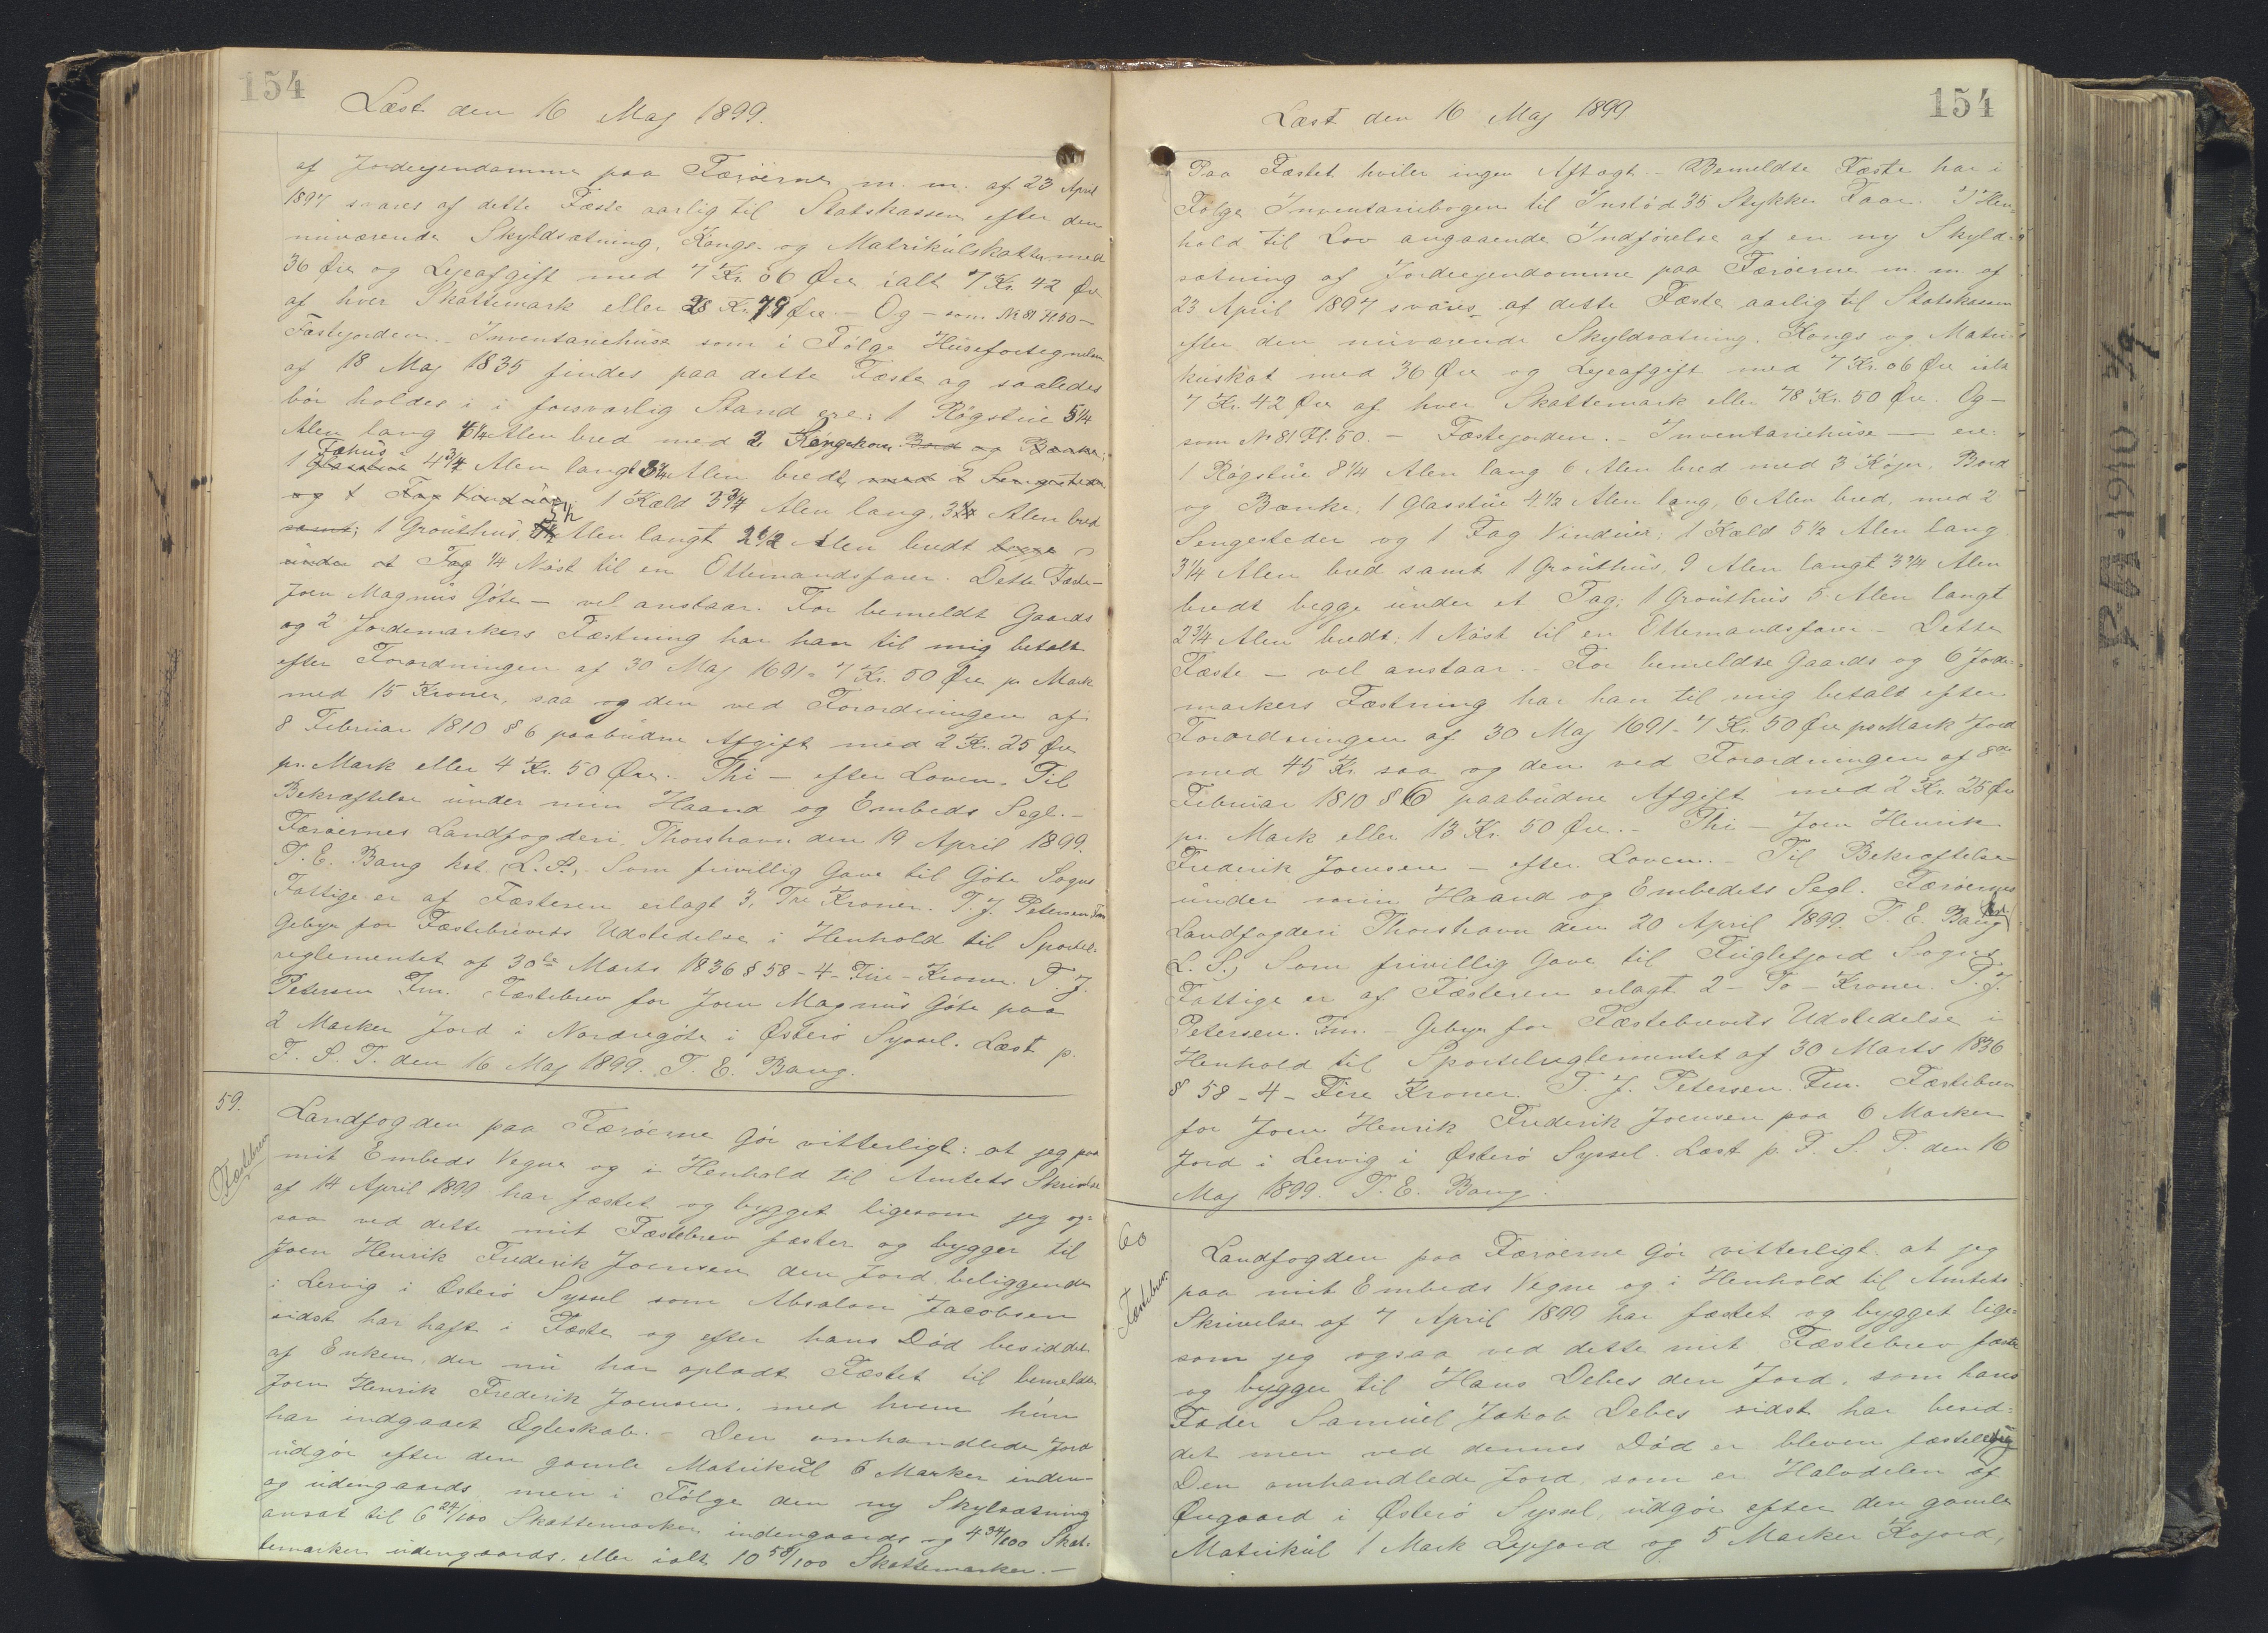 154
Læst den 16 Maj 1899.
af Jordeejendomme paa Færöerne m. m. af 23 April
1897 svares af dette Fæste aarlig til Statskassen efter den
nuværende Skyldsætning, Konge- og Matrikulskatter med
36 Øre og Lejeafgift med 7 Kr. 06 Øre ialt 7 Kr. 42 Øre
af hver Skattemark eller 28 Kr. 79 Øre. - Og - som № 81 Fl 50 -
Fæstejorden. - Inventariehuse som i Følge Husefortegnelsen
af 18 Maj 1835 findes paa dette Fæste og saaledes
bör holdes i i forsvarlig Stand ere: 1 Røgstue 5 1/4
Alen lang 4 1/4 Alen bred med 2 Køjer Bord og Bænke;
1 Fæhus 4 3/4 Alen langt 3 1/4 Alen bredt med 2 Sengesteder
og 1 Fag Vinduer; 1 Kæld 3 3/4 Alen lang, 3 1/4 Alen bred
samt; 1 Grouthus, 5 1/2 Alen langt 2 1/2 Alen bredt begge
under et Tag 1/4 Nöst til en Ottemandsfarer. Dette Fæste -
Joen Magnus Göte - vel anstaar. For bemeldt Gaards
og 2 Jordemarkers Fæstning har han til mig betalt
efter Forordningen af 30 Maj 1691 - 7 Kr. 50 Øre pr Mark
med 15 Kroner, saa og den ved Forordningen af
8 Februar 1810 § 6 paabudne Afgift med 2 Kr. 25 Øre
pr. Mark eller 4 Kr. 50 Øre. - Thi - efter Loven. Til
Bekræftelse under min Haand og Embeds Segl. -
Færöernes Landfogderi, Thorshavn den 19 April 1899.
T. E. Bang kst. (L. S.). Som frivillig Gave til Göte Sogns
Fattige er af Fæsteren erlagt 3, Tre Kroner. T. J. Petersen Fm
Gebyr for Fæstebrevets Udstedelse i Henhold til Sportel-
reglementet af 30te Marts 1836 § 58 - 4 - Fire - Kroner. T. J.
Petersen Fm. Fæstebrev for Joen Magnus Göte paa
2 Marker Jord i Nordregöte i Østerö Syssel. Læst p.
F. S. T. den 16 Maj 1899. T. E. Bang.
59.
Fæstebrev
Landfogden paa Færöerne Gör vitterligt: at jeg paa
mit Embeds Vegne og i Henhold til Amtets Skrivelse
af 14 April 1899 har fæstet og bygget ligesom jeg og-
saa ved dette mit Fæstebrev fæster og bygger til
Joen Henrik Frederik Joensen den Jord beliggende
i Lervig i Østerö Syssel som Absalon Jacobsen
sidst har haft i Fæste og efter hans Död besiddet
af Enken, der nu har opladt Fæstet til bemeldte
Joen Henrik Frederik Joensen, med hvem hun
har indgaaet Ægteskab. - Den omhandlede Jord
udgör efter den gamle Matrikul 6 Marker inden-
og udengaards men i Følge den ny Skylsætning
ansat til 6 24/100 Skattemarker indengaards og 4 34/100 Skat-
temarker udengaards, eller ialt 10 58/100 Skattemarker. -
154
Læst den 16 Maj 1899
Paa Fæstet hviler ingen Aftægt. - Bemeldte Fæste har i
Følge Inventariebogen til Instöd 35 Stykker Faar. I Hen-
hold til Lov angaaende Indförelse af en ny Skyld-
sætning af Jordeejendomme paa Færöerne m. m. af
23 April 1897 svares af dette Fæste aarlig til Statskassen
efter den nuværende Skyldsætning, Konge og Matri-
kulskat med 36 Øre og Lejeafgift med 7 Kr. 06 Øre ialt
7 Kr. 42 Øre af hver Skattemark eller 78 Kr. 50 Øre. Og -
som № 81 Fl. 50. - Fæstejorden. Inventariehuse - ere:
1 Røgstue 8 1/4 Alen lang 6 Alen bred med 3 Køjer, Bord
og Bænke; 1 Glasstue 4 1/2 Alen lang, 6 Alen bred, med 2
Sengesteder og 1 Fag Vinduer; 1 Kæld 5 1/2 Alen lang
3 1/4 Alen bred samt 1 Grouthus, 9 Alen langt 3 3/4 Alen
bredt begge under et Tag; 1 Grouthus 5 Alen langt
2 3/4 Alen bredt; 1 Nöst til en Ottemandsfarer - Dette
Fæste - vel anstaar. - For bemeldte Gaards og 6 Jorde-
markers Fæstning har han til mig betalt efter
Forordningen af 30 Maj 1691 - 7 Kr. 50 Øre pr Mark Jord
med 45 Kr. saa og den ved Forordningen af 8de
Februar 1810 § 6 paabudne Afgift med 2 Kr. 25 Øre
pr. Mark eller 13 Kr. 50 Øre. - Thi - Joen Henrik
Frederik Joensen - efter Loven. - Til Bekræftelse
under min Haand og Embedets Segl. Færöernes
Landfogderi Thorshavn den 20 April 1899. T. E. Bang kst.
(L. S.) Som frivillig Gave til Fuglefjord Sogns
Fattige er af Fæsteren erlagt 2 - To - Kroner. T. J.
Petersen. Fm. - Gebyr for Fæstebrevets Udstedelse i
Henhold til Sportelreglementet af 30 Marts 1836
§ 58 - 4 - Fire Kroner. T. J. Petersen. Fm. Fæstebrev
for Joen Henrik Frederik Joensen paa 6 Marker
Jord i Lervig i Østerö Syssel. Læst p. F. S. T. den 16
Maj 1899. T. E. Bang.
60
Fæstebrev.
Landfogden paa Færöerne Gör vitterligt: at jeg
paa mit Embeds Vegne og i Henhold til Amtets
Skrivelse af 7 April 1899 har fæstet og bygget lige-
som jeg ogsaa ved dette mit Fæstebrev fæster
og bygger til Hans Debes den Jord, som hans
Fader Samuel Jakob Debes sidst har besid-
det men ved dennes Död er bleven fæsteledig
Den omhandlede Jord, som er Halvdelen af
Øregaard i Østerö Syssel, udgör efter den gamle
Matrikul 1 Mark Lejejord og 5 Marker Kojord,
P. 81 - 1910 - 3/9.